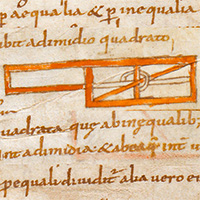 p aequalia & p inequalia
ubit adimidio quadrato
uadrata quę abinequalib;
nt adimidia & abea
pequali diuiditᷓ aba uero e